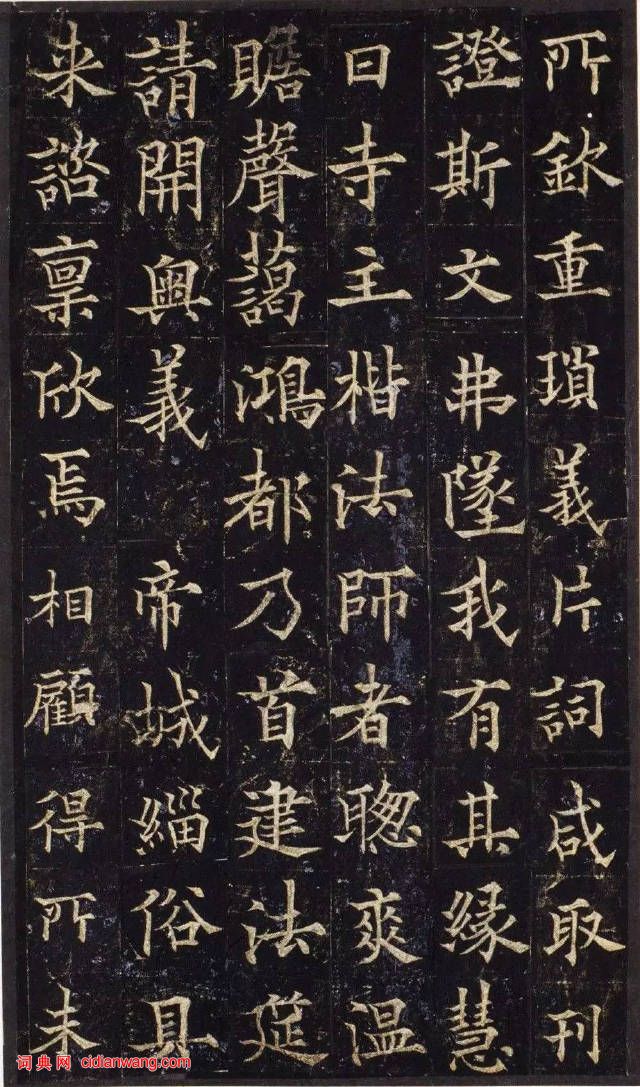 所欽重瑣義片詞咸取刊
證斯文弗墜我有其緣慧
日寺主楷法師者聰爽温
贍聲藹鴻都乃首建法筵
請開奥義　帝城緇俗具
来諮禀欣焉相顧得所未
词典网 cidianwang.com